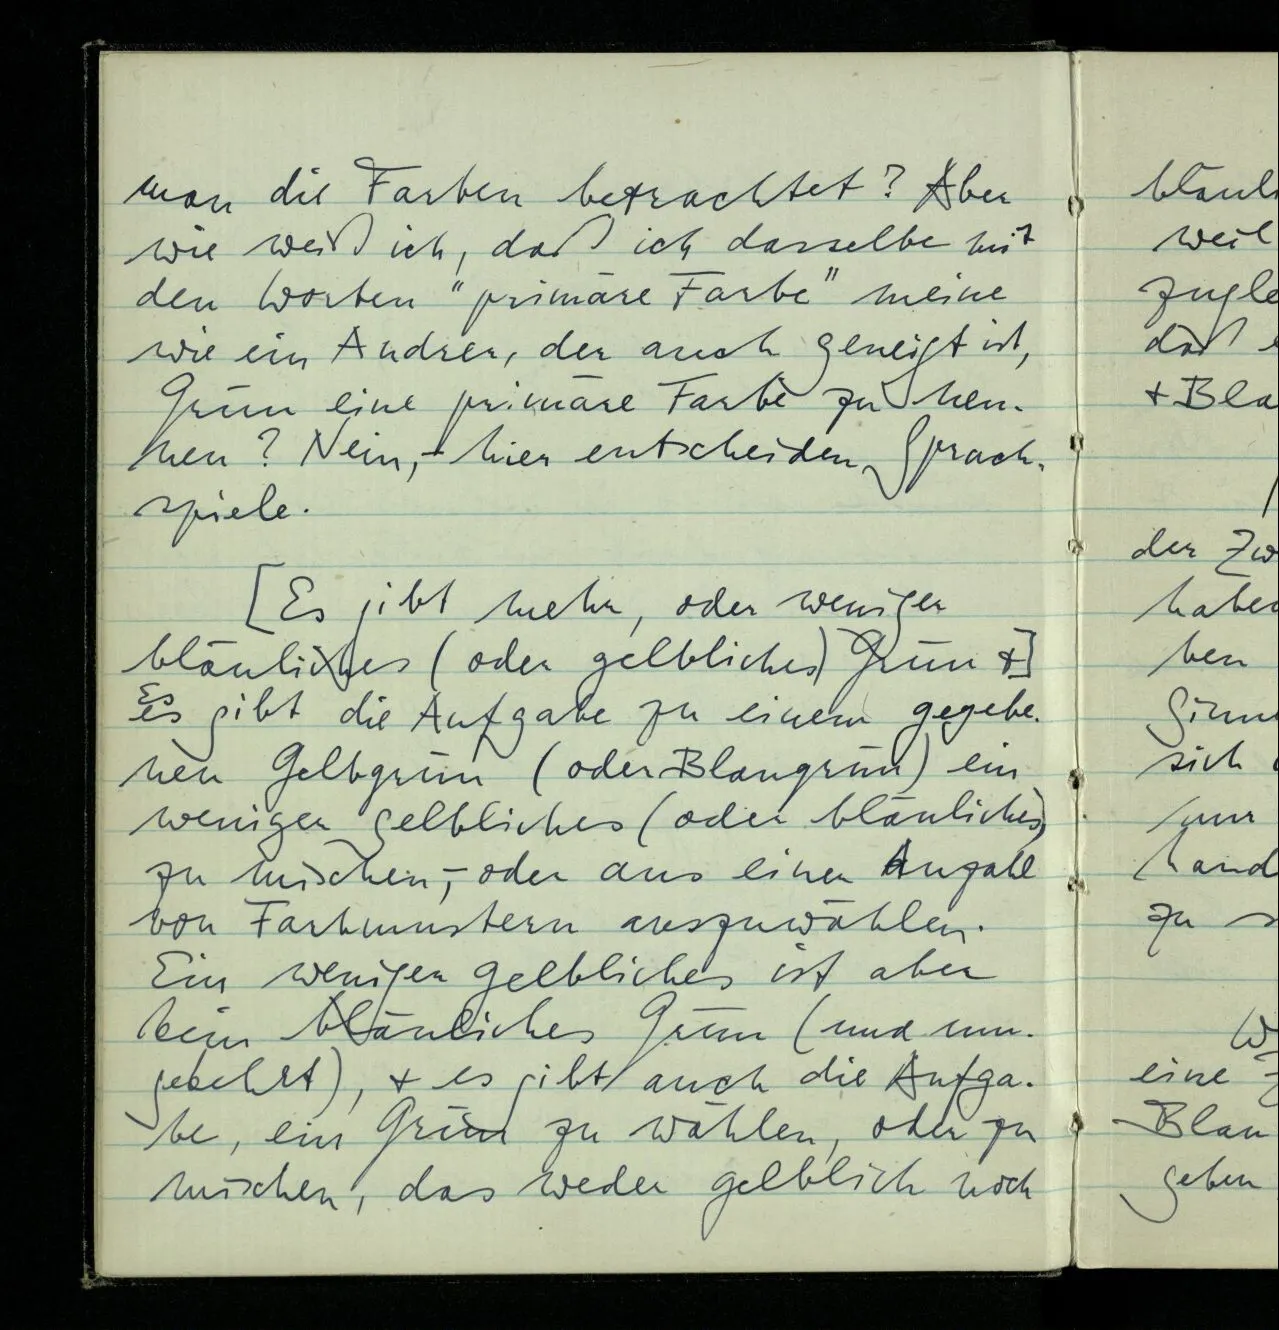 man die Farben betrachtet? Aber
wie weiß ich, daß ich dasselbe mit
den Worten "primäre Farbe" meine
wie ein Andrer, der auch geneigt ist,
Grün eine primäre Farbe zu nen-
nen? Nein, – hier entscheiden Sprach-
spiele.
[Es gibt mehr, oder weniger
bläuliches (oder gelbliches) Grün &]
Es gibt die Aufgabe zu einem gegebe-
nen Gelbgrün (oder Blaugrün) ein
weniger gelbliches (oder bläuliches)
zu mischen, – oder aus einer Anzahl
von Farbmustern auszuwählen.
Ein weniger gelbliches ist aber
kein bläuliches Grün (und um-
gekehrt), & es gibt auch die Aufga-
be, ein Grün zu wählen, oder zu
mischen, das weder gelblich noch
bläul
weil
zugle
daß e
& Bla
der Zw
haben
ben
sich
nur
hand
zu s
W
eine Z
Blau
geben